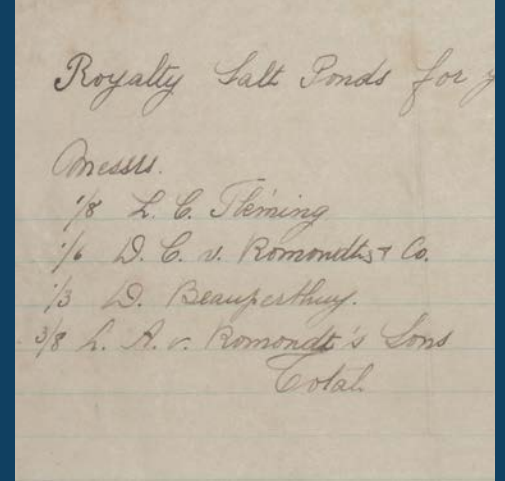 Royalty Salt Ponds for y
Messrs.
1/8 L. C. Fleming
1/6 D. C. v. Romondt & Co.
1/3 D. Beauperthuy.
3/8 L. A. v. Romondt's Sons
Total